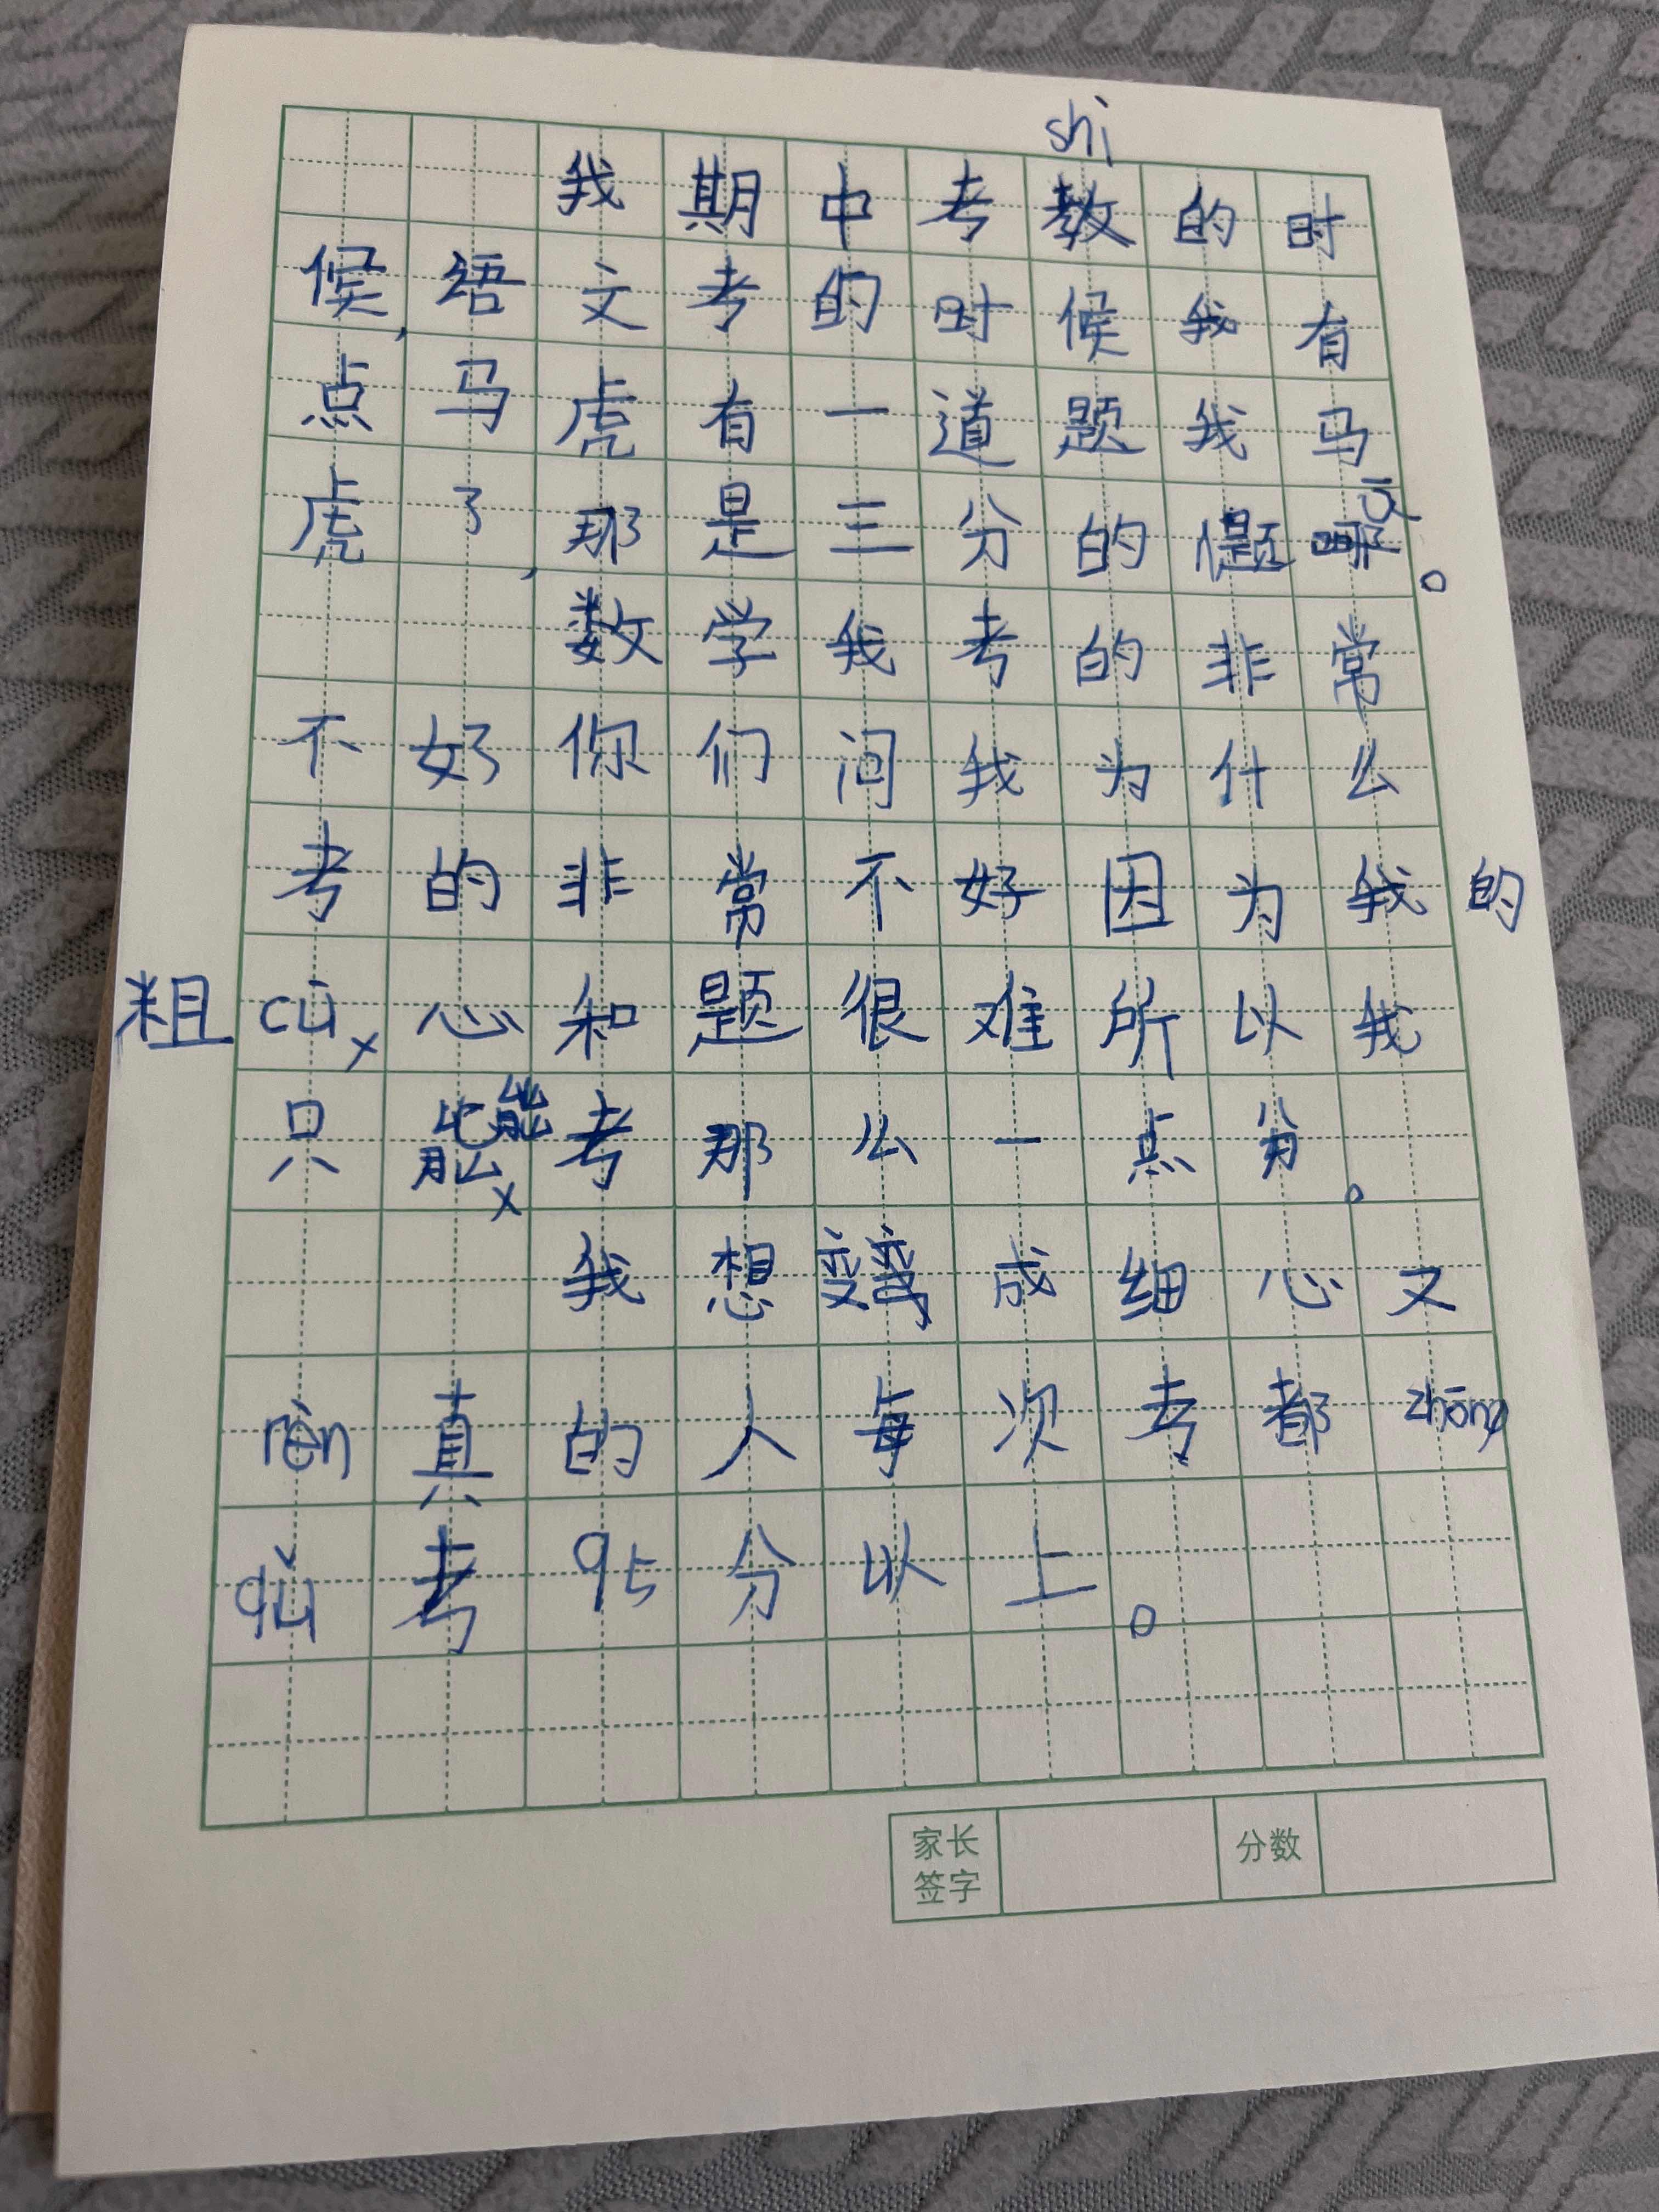 shi
我期中考教的时
候，语文考的时候我有
点马虎有一道题我马
虎了，那是三分的题哪。
数学我考的非常
不好你们问我为什么
考的非常不好因为我的
粗cū心和题很难所以我
只能能考那么一点分。
我想变成细心又
rèn真的人每次考都zhēng
qǔ考95分以上。
家长签字
分数